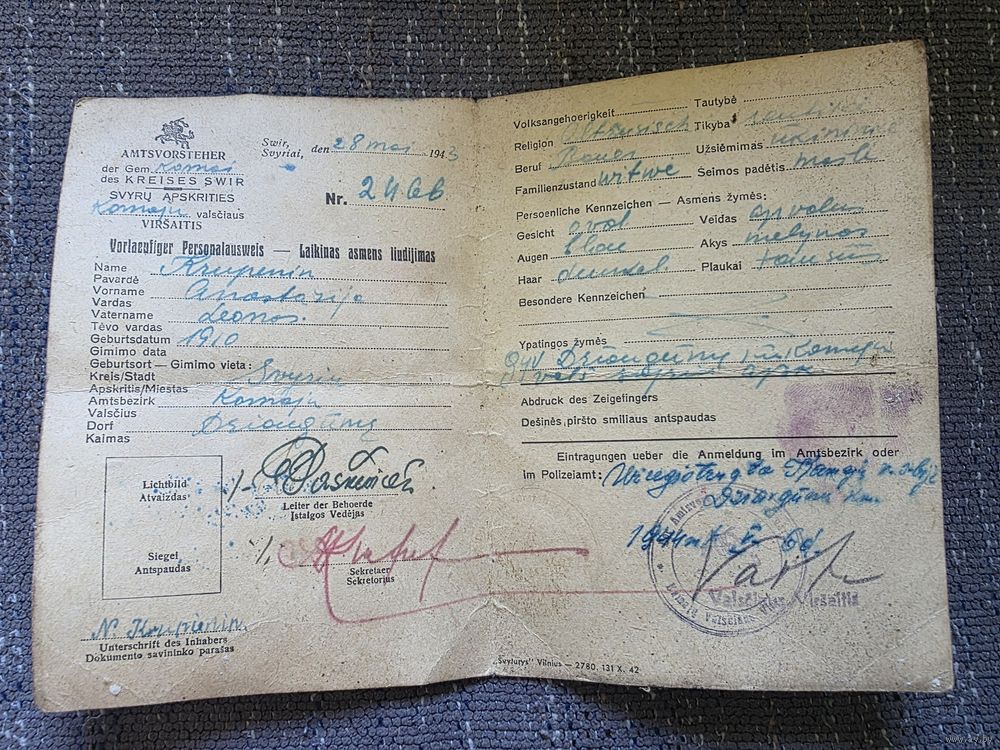 AMTSVORSTEHER
der Gem. Komai
des KREISES SWIR
SVYRŲ APSKRITIES
Komajų valsčiaus
VIRŠAITIS
Swir,
Svyriai, den 28 mai 1943
Nr. 2466
Vorlaeufiger Personalausweis — Laikinas asmens liudijimas
Name Krupenin
Pavardė
Vorname Anastazija
Vardas
Vatername Leonos.
Tėvo vardas
Geburtsdatum 1910
Gimimo data
Geburtsort — Gimimo vieta:
Kreis/Stadt Svyrių
Apskritis/Miestas
Amtsbezirk Komajų
Valsčius
Dorf
Kaimas
Lichtbild
Atvaizdas
Siegel
Antspaudas
Leiter der Behoerde
Įstaigos Vedėjas
Sekretaer
Sekretorius
Unterschrift des Inhabers
Dokumento savininko parašas
Volksangehoerigkeit Tautybė
Religion Tikyba
Beruf Bauer Užsiėmimas ukininkė
Familienzustand witwe Šeimos padėtis našlė
Persoenliche Kennzeichen — Asmens žymės:
Gesicht oval Veidas apvalus
Augen blau Akys mėlynos
Haar dunkel. Plaukai tamsūs
Besondere Kennzeichen
Ypatingos žymės
Abdruck des Zeigefingers
Dešinės piršto smiliaus antspaudas
Eintragungen ueber die Anmeldung im Amtsbezirk oder
im Polizeiamt:
1944 m
Valsčiaus Viršaitis
„Švyturys" Vilnius — 2780. 131 X. 42